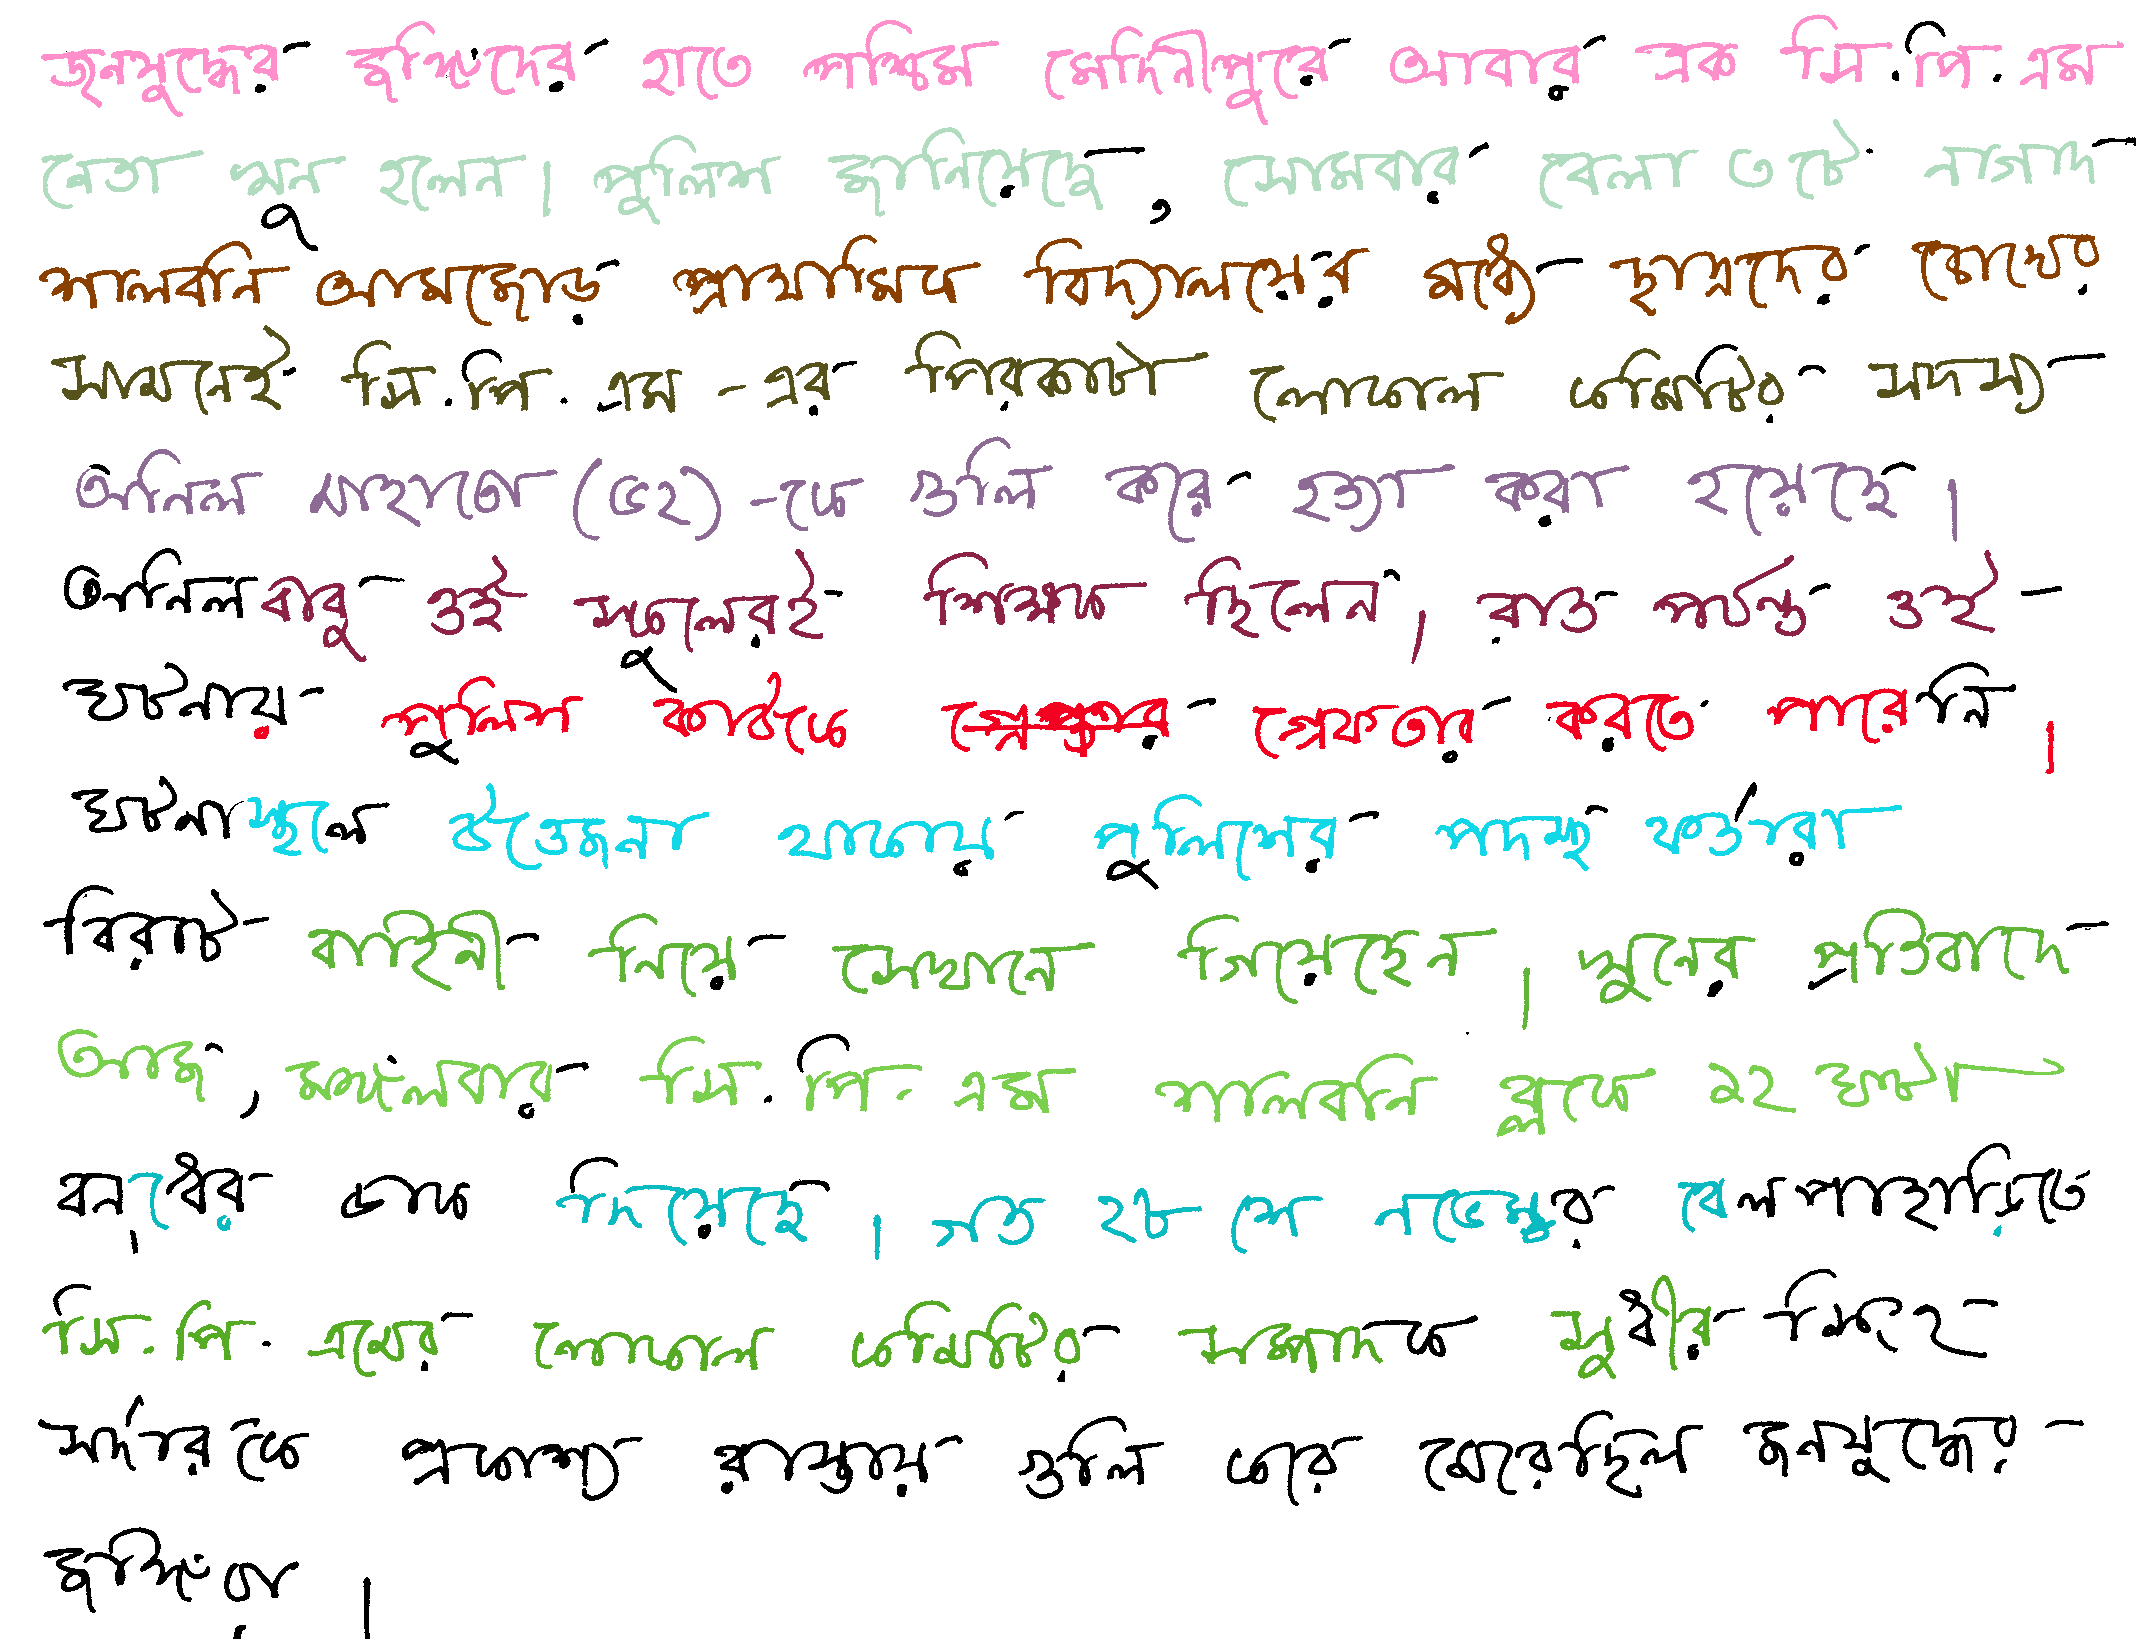 জনযুদ্ধের জঙ্গিদের হাতে পশ্চিম মেদিনীপুরে আবার এক সি.পি.এম
নেতা খুন হলেন। পুলিশ জানিয়েছে, সোমবার বেলা ৩টে নাগাদ
শালবনি আমজোড় প্রাথামিক বিদ্যালয়ের মধ্যে ছাত্রদের চোখের
সামনেই সি.পি.এম-এর পিরকাটা লোকাল কমিটির সদস্য
অনিল মাহাতো (৫২)-কে গুলি করে হত্যা করা হয়েছে।
অনিলবাবু ওই স্কুলেরই শিক্ষক ছিলেন। রাত পর্যন্ত ওই
ঘটনায় পুলিশ কাউকে গ্রেফতার করতে পারেনি।
ঘটনাস্থলে উত্তেজনা থাকায় পুলিশের পদস্থ কর্তারা
বিরাট বাহিনী নিয়ে সেখানে গিয়েছেন। খুনের প্রতিবাদে
আজ, মঙ্গলবার সি.পি.এম শালবনি ব্লকে ১২ ঘণ্টা
বন্‌ধের ডাক দিয়েছে। গত ২৮শে নভেম্বর বেলপাহাড়িতে
সি.পি.এমের লোকাল কমিটির সম্পাদক সুধীর সিংহ
সর্দারকে প্রকাশ্য রাস্তায় গুলি করে মেরেছিল জনযুদ্ধের
জঙ্গিরা।